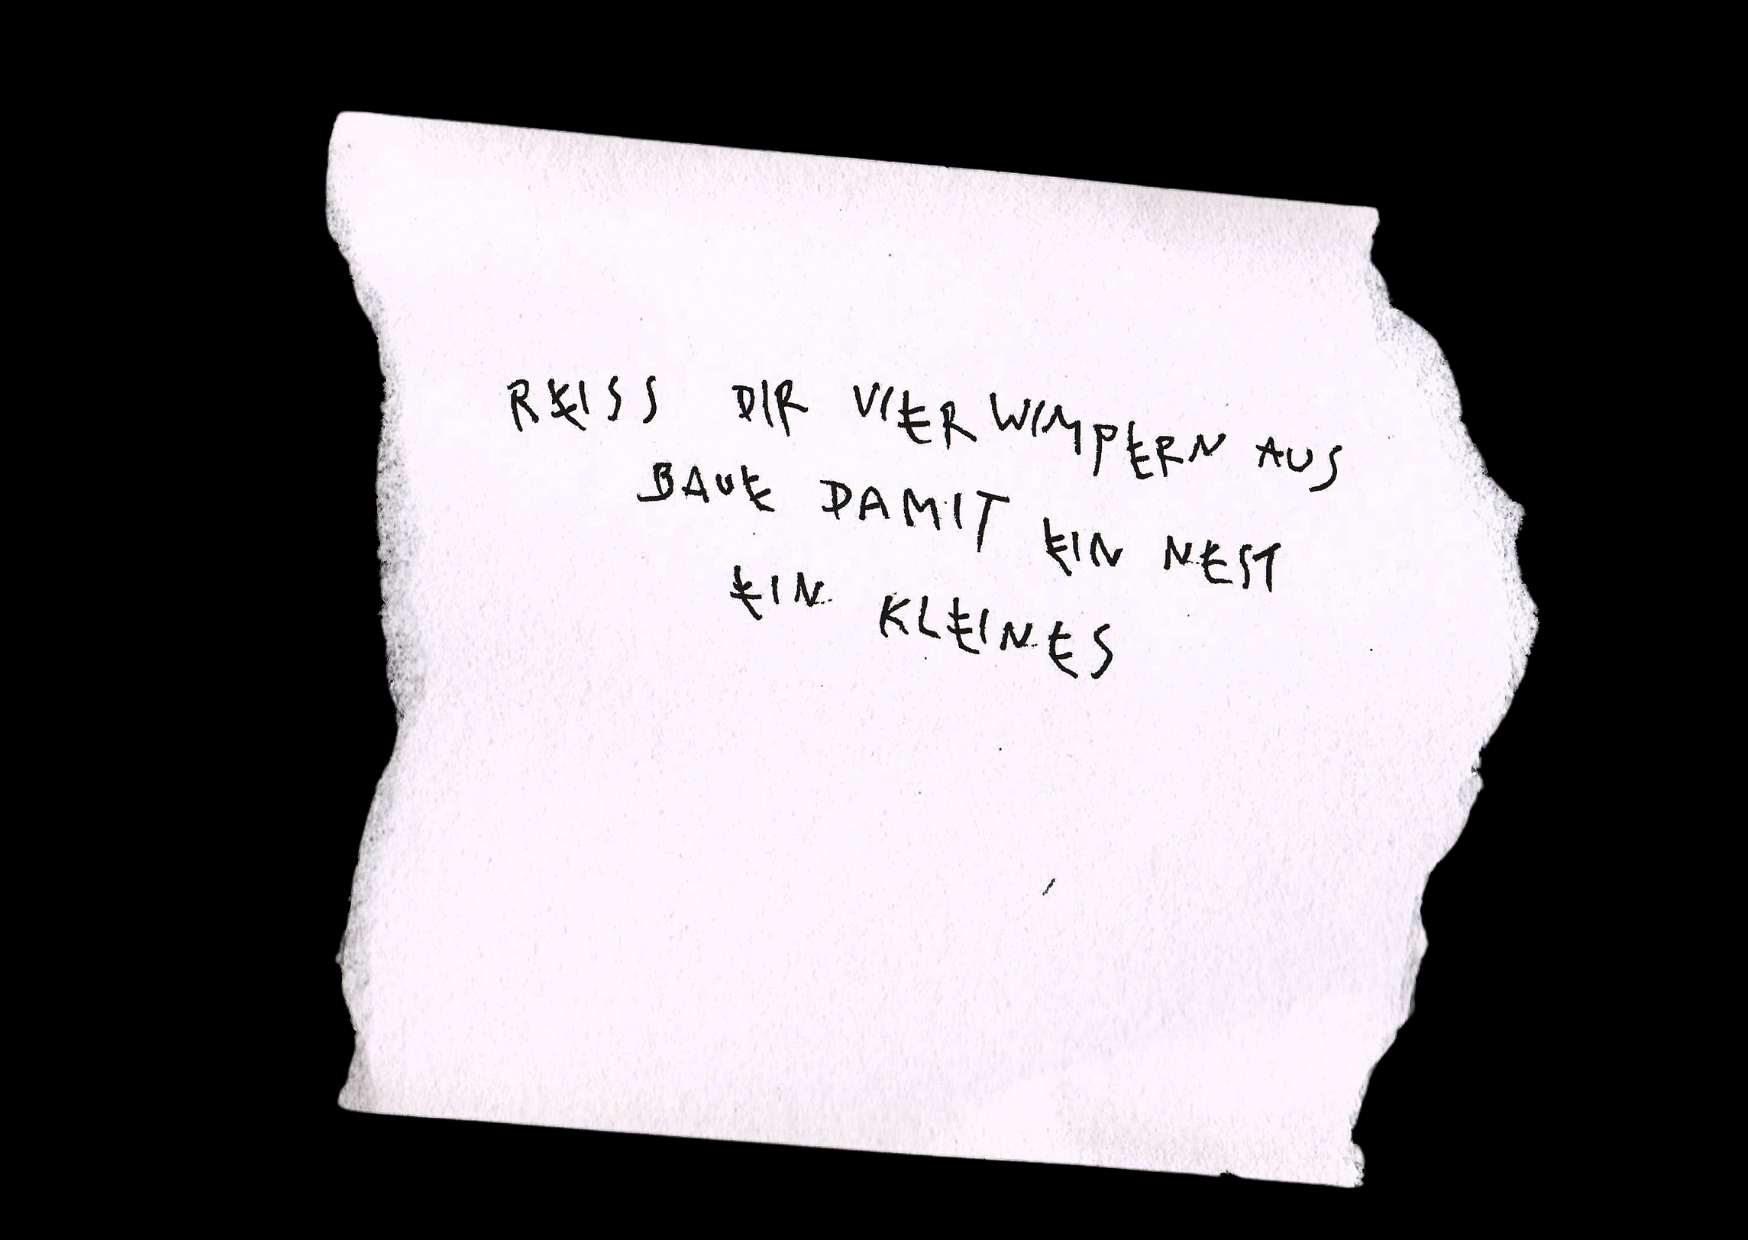 REISS DIR VIER WIMPERN AUS
BAUE DAMIT EIN NEST
EIN KLEINES